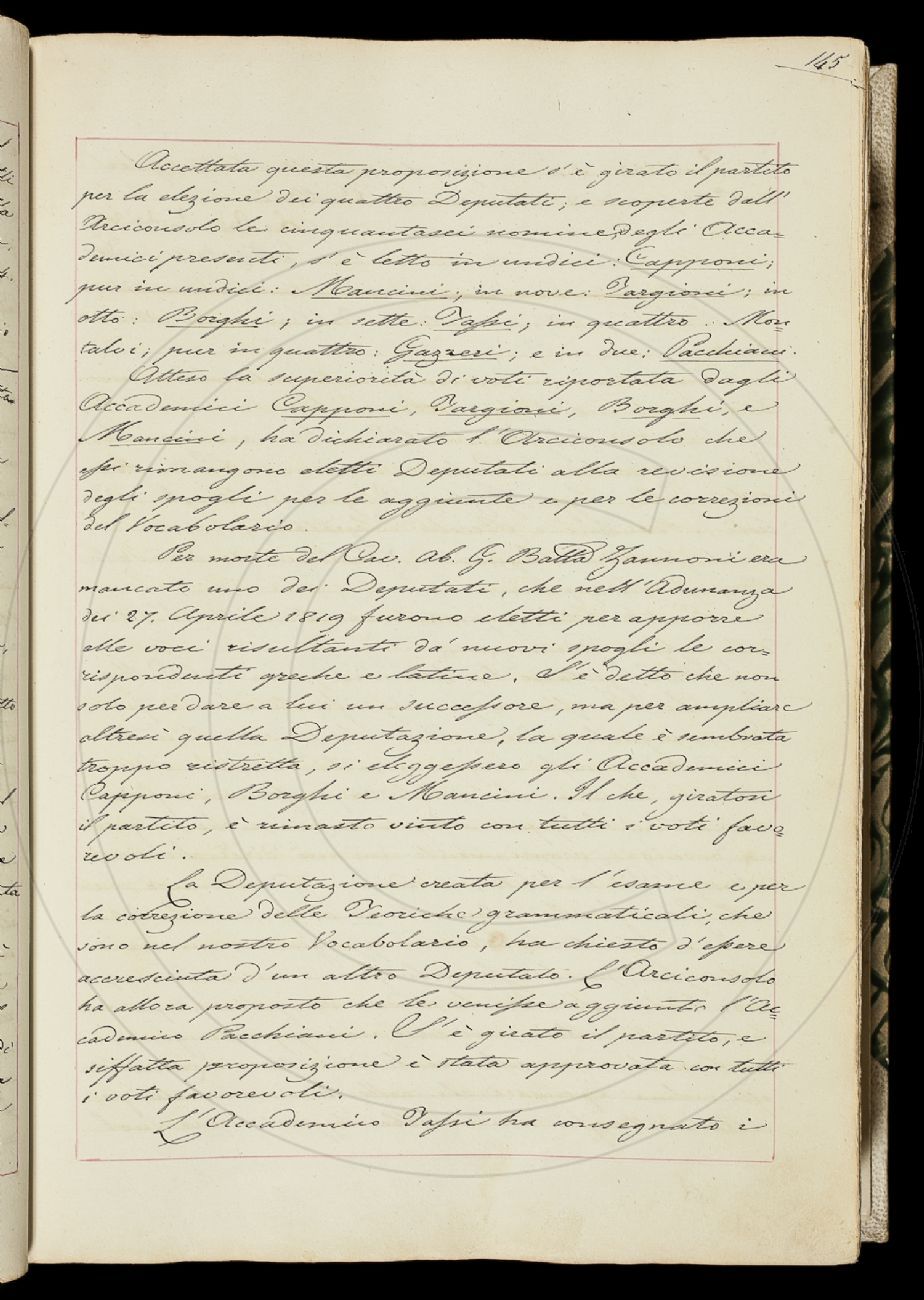 145
Accettata questa proposizione s'è girato il partito
per la elezione dei quattro Deputati; e scoperte dall'
Arciconsolo le cinquantasei nomine degli Acca=
demici presenti, s'è letto in undici: Capponi;
pur in undici: Mancini; in nove: Targioni; in
otto: Borghi; in sette: Tassi; in quattro: Mon=
talvi; pur in quattro: Gazzeri; e in due: Pacchiani.
Atteso la superiorità di voti riportata dagli
Accademici Capponi, Targioni, Borghi, e
Mancini, ha dichiarato l'Arciconsolo che
essi rimangono eletti Deputati alla revisione
degli spogli per le aggiunte e per le correzioni
del Vocabolario.
Per morte del Cav. Ab. G. Batta Zannoni era
mancato uno dei Deputati, che nell'Adunanza
dei 27. Aprile 1819 furono eletti per apporre
alle voci risultanti da' nuovi spogli le cor=
rispondenti greche e latine. S'è detto che non
solo per dare a lui un successore, ma per ampliare
altresì quella Deputazione, la quale è sembrata
troppo ristretta, si eleggessero gli Accademici
Capponi, Borghi e Mancini. Il che, giratosi
il partito, è rimasto vinto con tutti i voti favo=
revoli.
La Deputazione creata per l'esame e per
la correzione delle Teoriche grammaticali, che
sono nel nostro Vocabolario, ha chiesto d'essere
accresciuta d'un altro Deputato. L'Arciconsolo
ha allora proposto che le venisse aggiunto l'Ac=
cademico Pacchiani. S'è girato il partito, e
siffatta proposizione è stata approvata con tutti
i voti favorevoli.
L'Accademico Tassi ha consegnato i